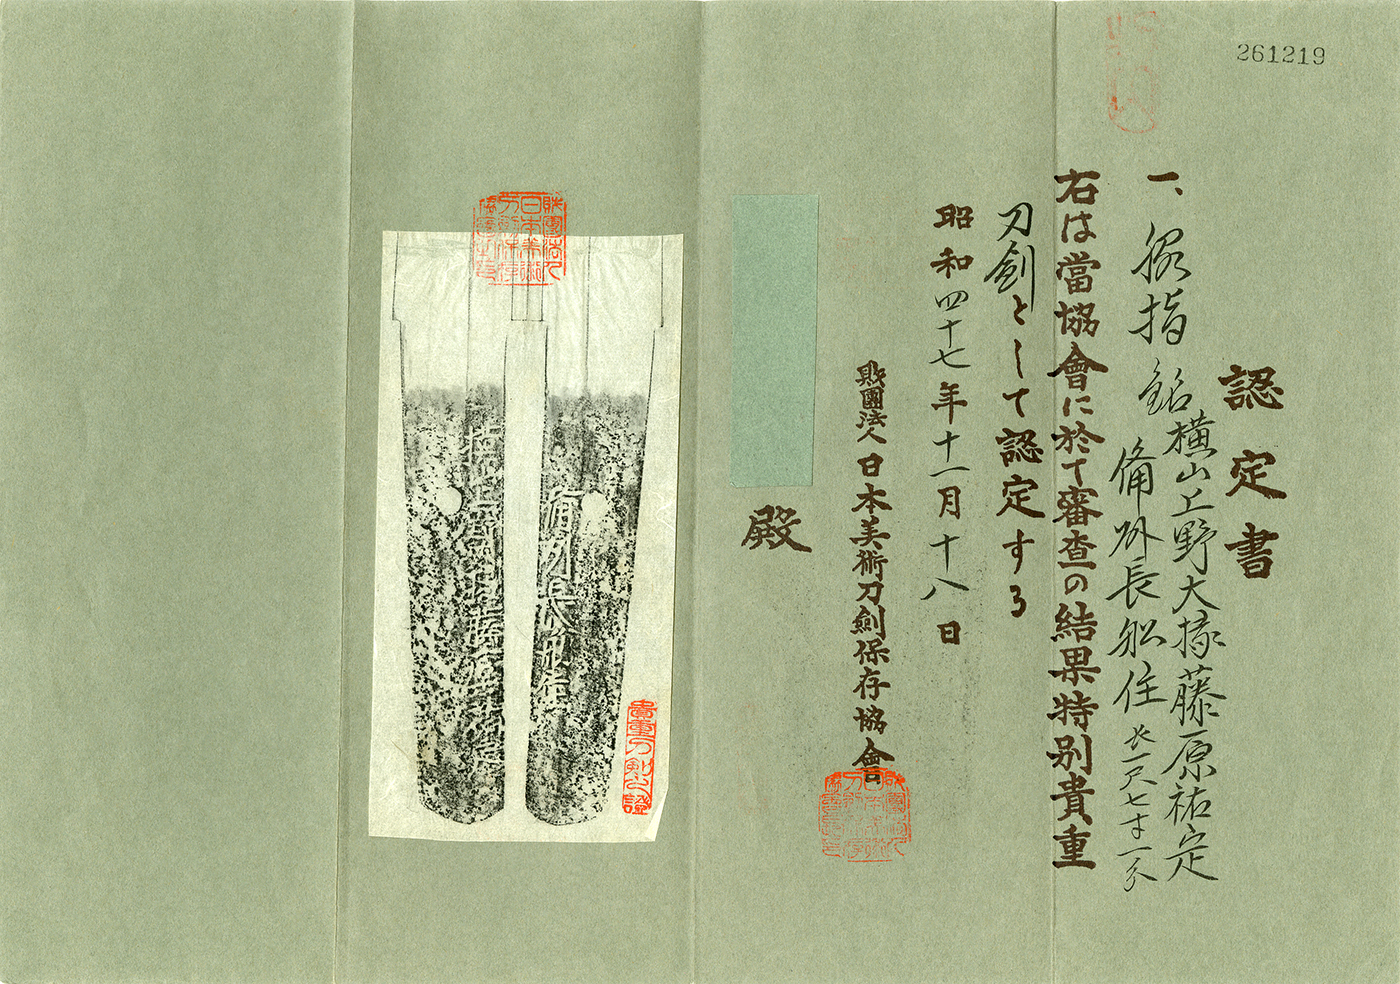 261219
認定書
一、脇指 銘 横山上野大掾藤原祐定
備州長船住 長一尺七寸一分
右は當協會に於て審査の結果特別貴重
刀劍として認定する
昭和四十七年十一月十八日
財團法人日本美術刀劍保存協會
殿
財團法人日本美術刀劍保存
備州長船住
貴重刀劍之證